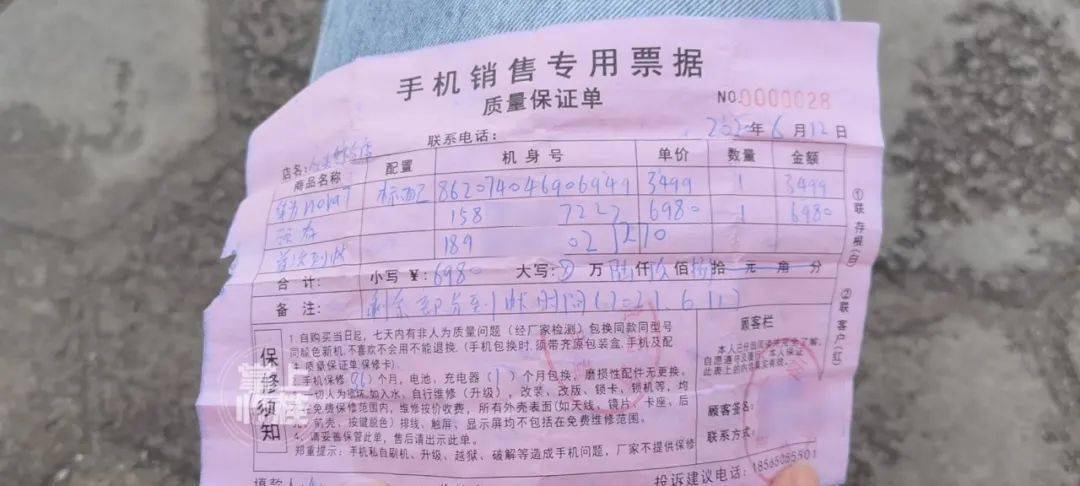 手机销售专用票据
质量保证单
NO.0000028
联系电话：
2020年6月12日
店名：
商品名称 配置 机身号 单价 数量 金额
华为nova7 标配 862074046906949 3499 1 3499
预存 158 7227 6980 1 6980
189 02
合计： 小写￥：6980 大写： 万陆仟玖佰捌拾 元 角 分
备注： 剩余部分到 时间
①联存根(白)
②联客户(红)
保修须知
1.自购买当日起，七天内有非人为质量问题（经厂家检测）包换同款同型号
同颜色新机.不喜欢不会用不能退换.（手机包换时.须带齐原包装盒.手机及配
质量保证单 保修卡）.
2.手机保修 个月，电池，充电器（1）个月包换，磨损性配件无更换。
一切人为 如入水，自行维修（升级），改装、改版、锁卡、锁机等，均
在免费保修范围内，维修按价收费，所有外壳表面(如天线、镜片、卡座、后
前壳、按键脱色）排线、触屏、显示屏均不包括在免费维修范围。
4、请妥善保管此单，售后请出示此单。
郑重提示：手机私自刷机、升级、越狱、破解等造成手机问题，厂家不提供保修
顾客栏
本人已仔细阅读并完全了解，
自愿遵守及履行，本人保证
此表上的内容真实有效。
顾客签名：
联系方式：
填款人：
投诉建议电话：18565085501
掌上